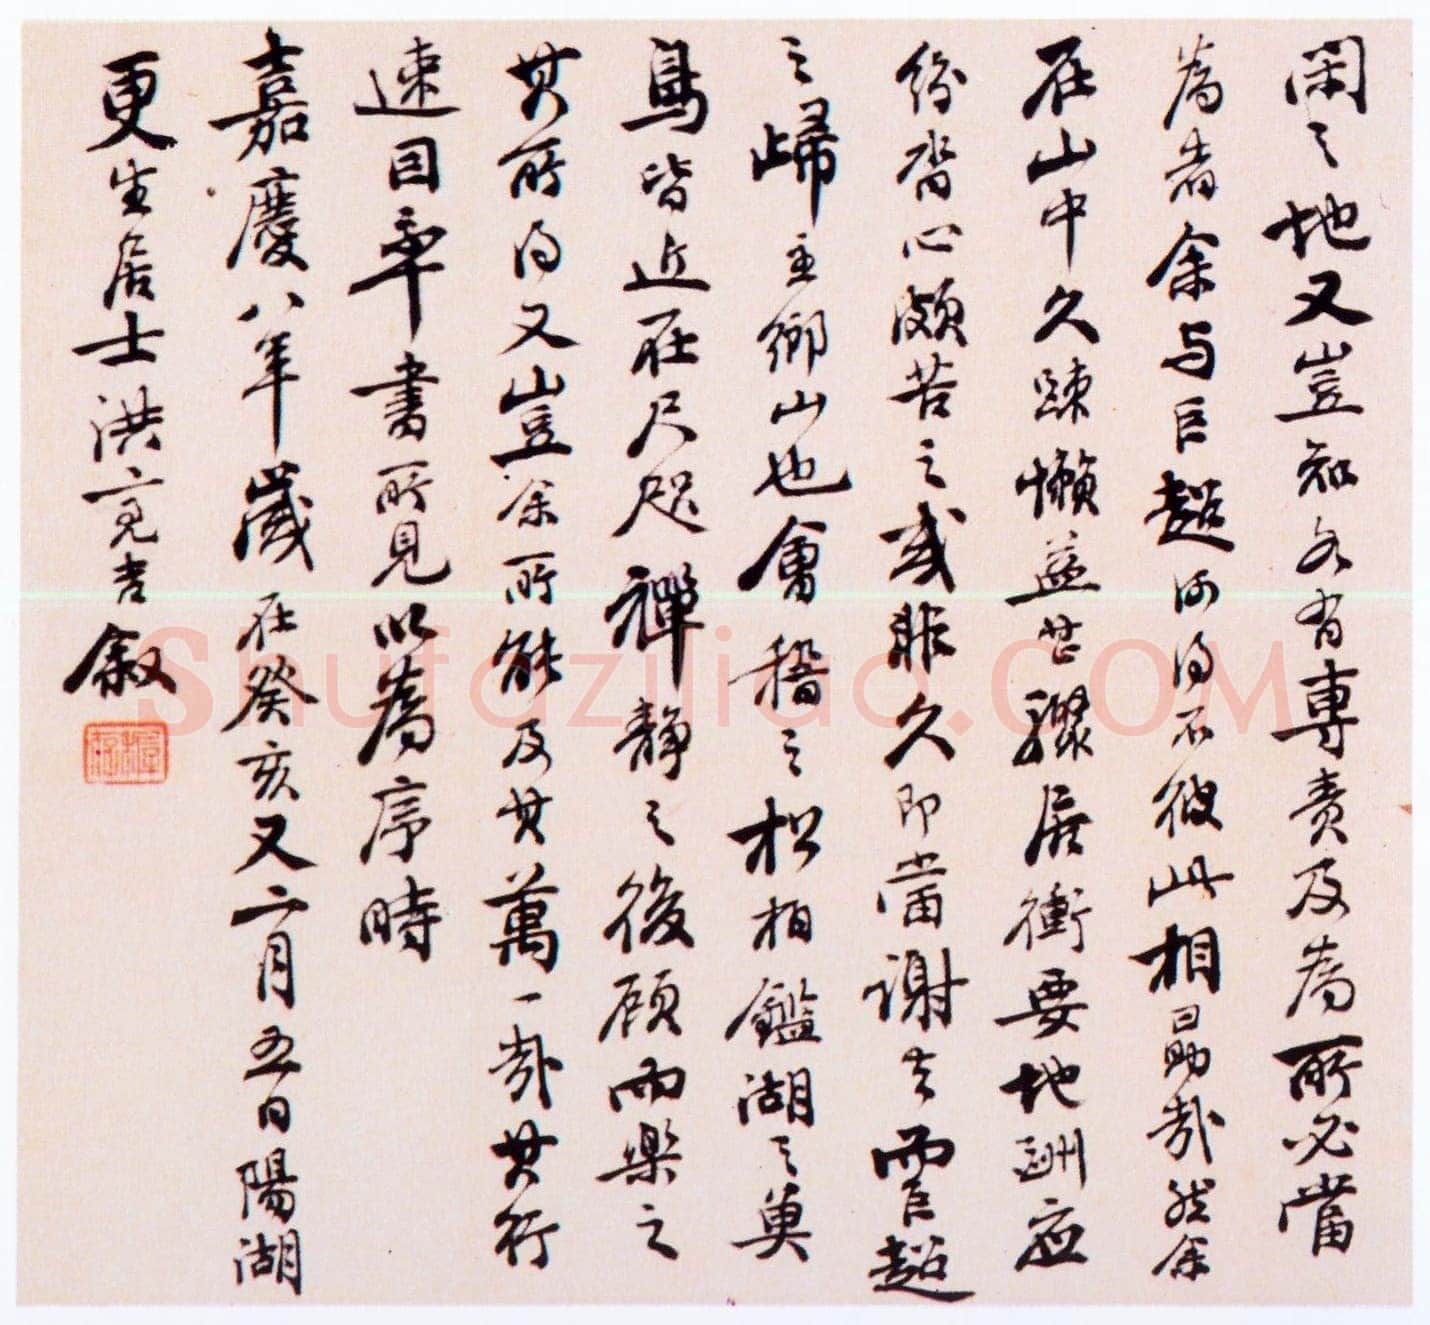 閑之地又豈知各有專責及為所必當
為者余与巨超何得不彼此相勗哉然余
在山中久疎懶益甚驟居衝要地酬應
紛沓心頗苦之或非久即當謝去而巨超
之歸主鄉山也會稽之松栢鑑湖之奠
鳧皆近在尺咫禪靜之後顧而樂之
其所得又豈余所能及其萬一哉其行
速因率書所見以為序時
嘉慶八年歲在癸亥又二月五日陽湖
更生居士洪亮吉敘
Shufaziliao.COM